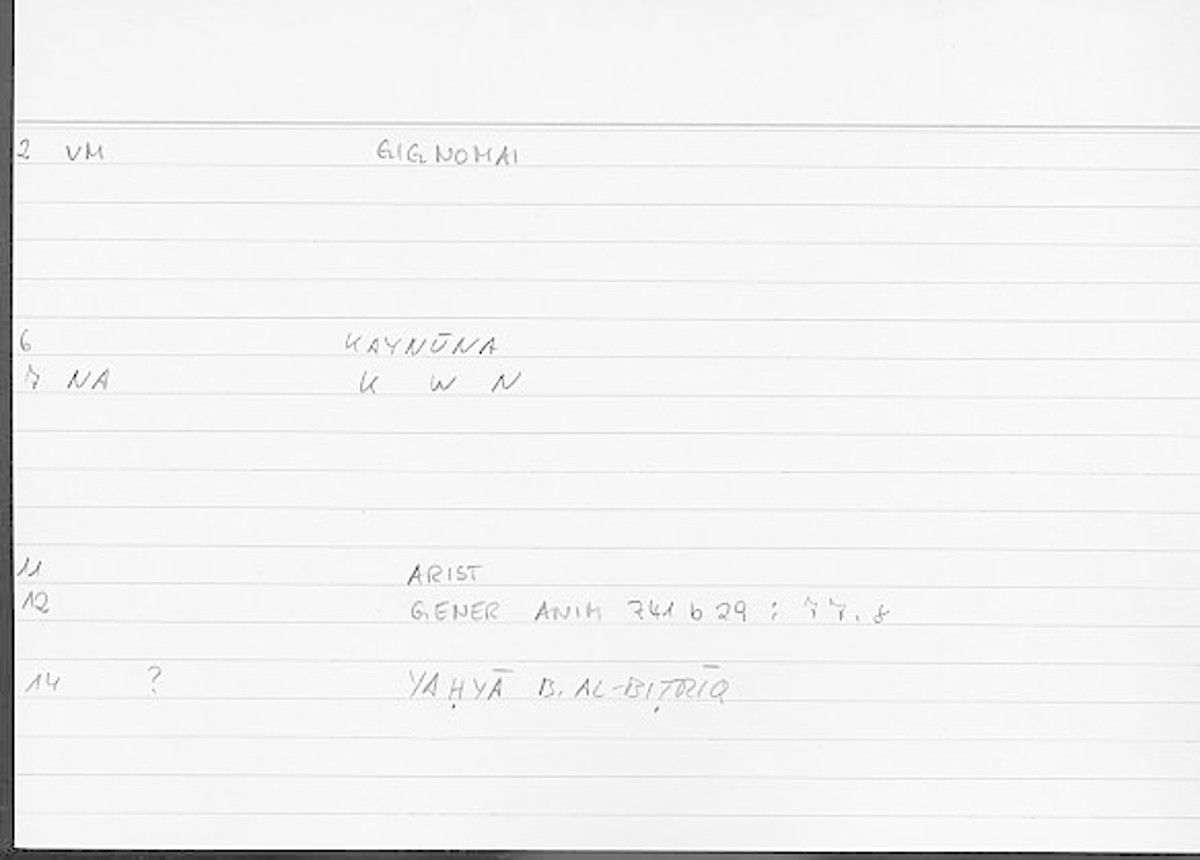 2 VM GIGNOMAI
6 KAYNŪNA
7 NA K W N
11 ARIST
12 GENER ANIM 741 b 29 : 77.8
14 ? YAḤYĀ B. AL-BIṬRĪQ